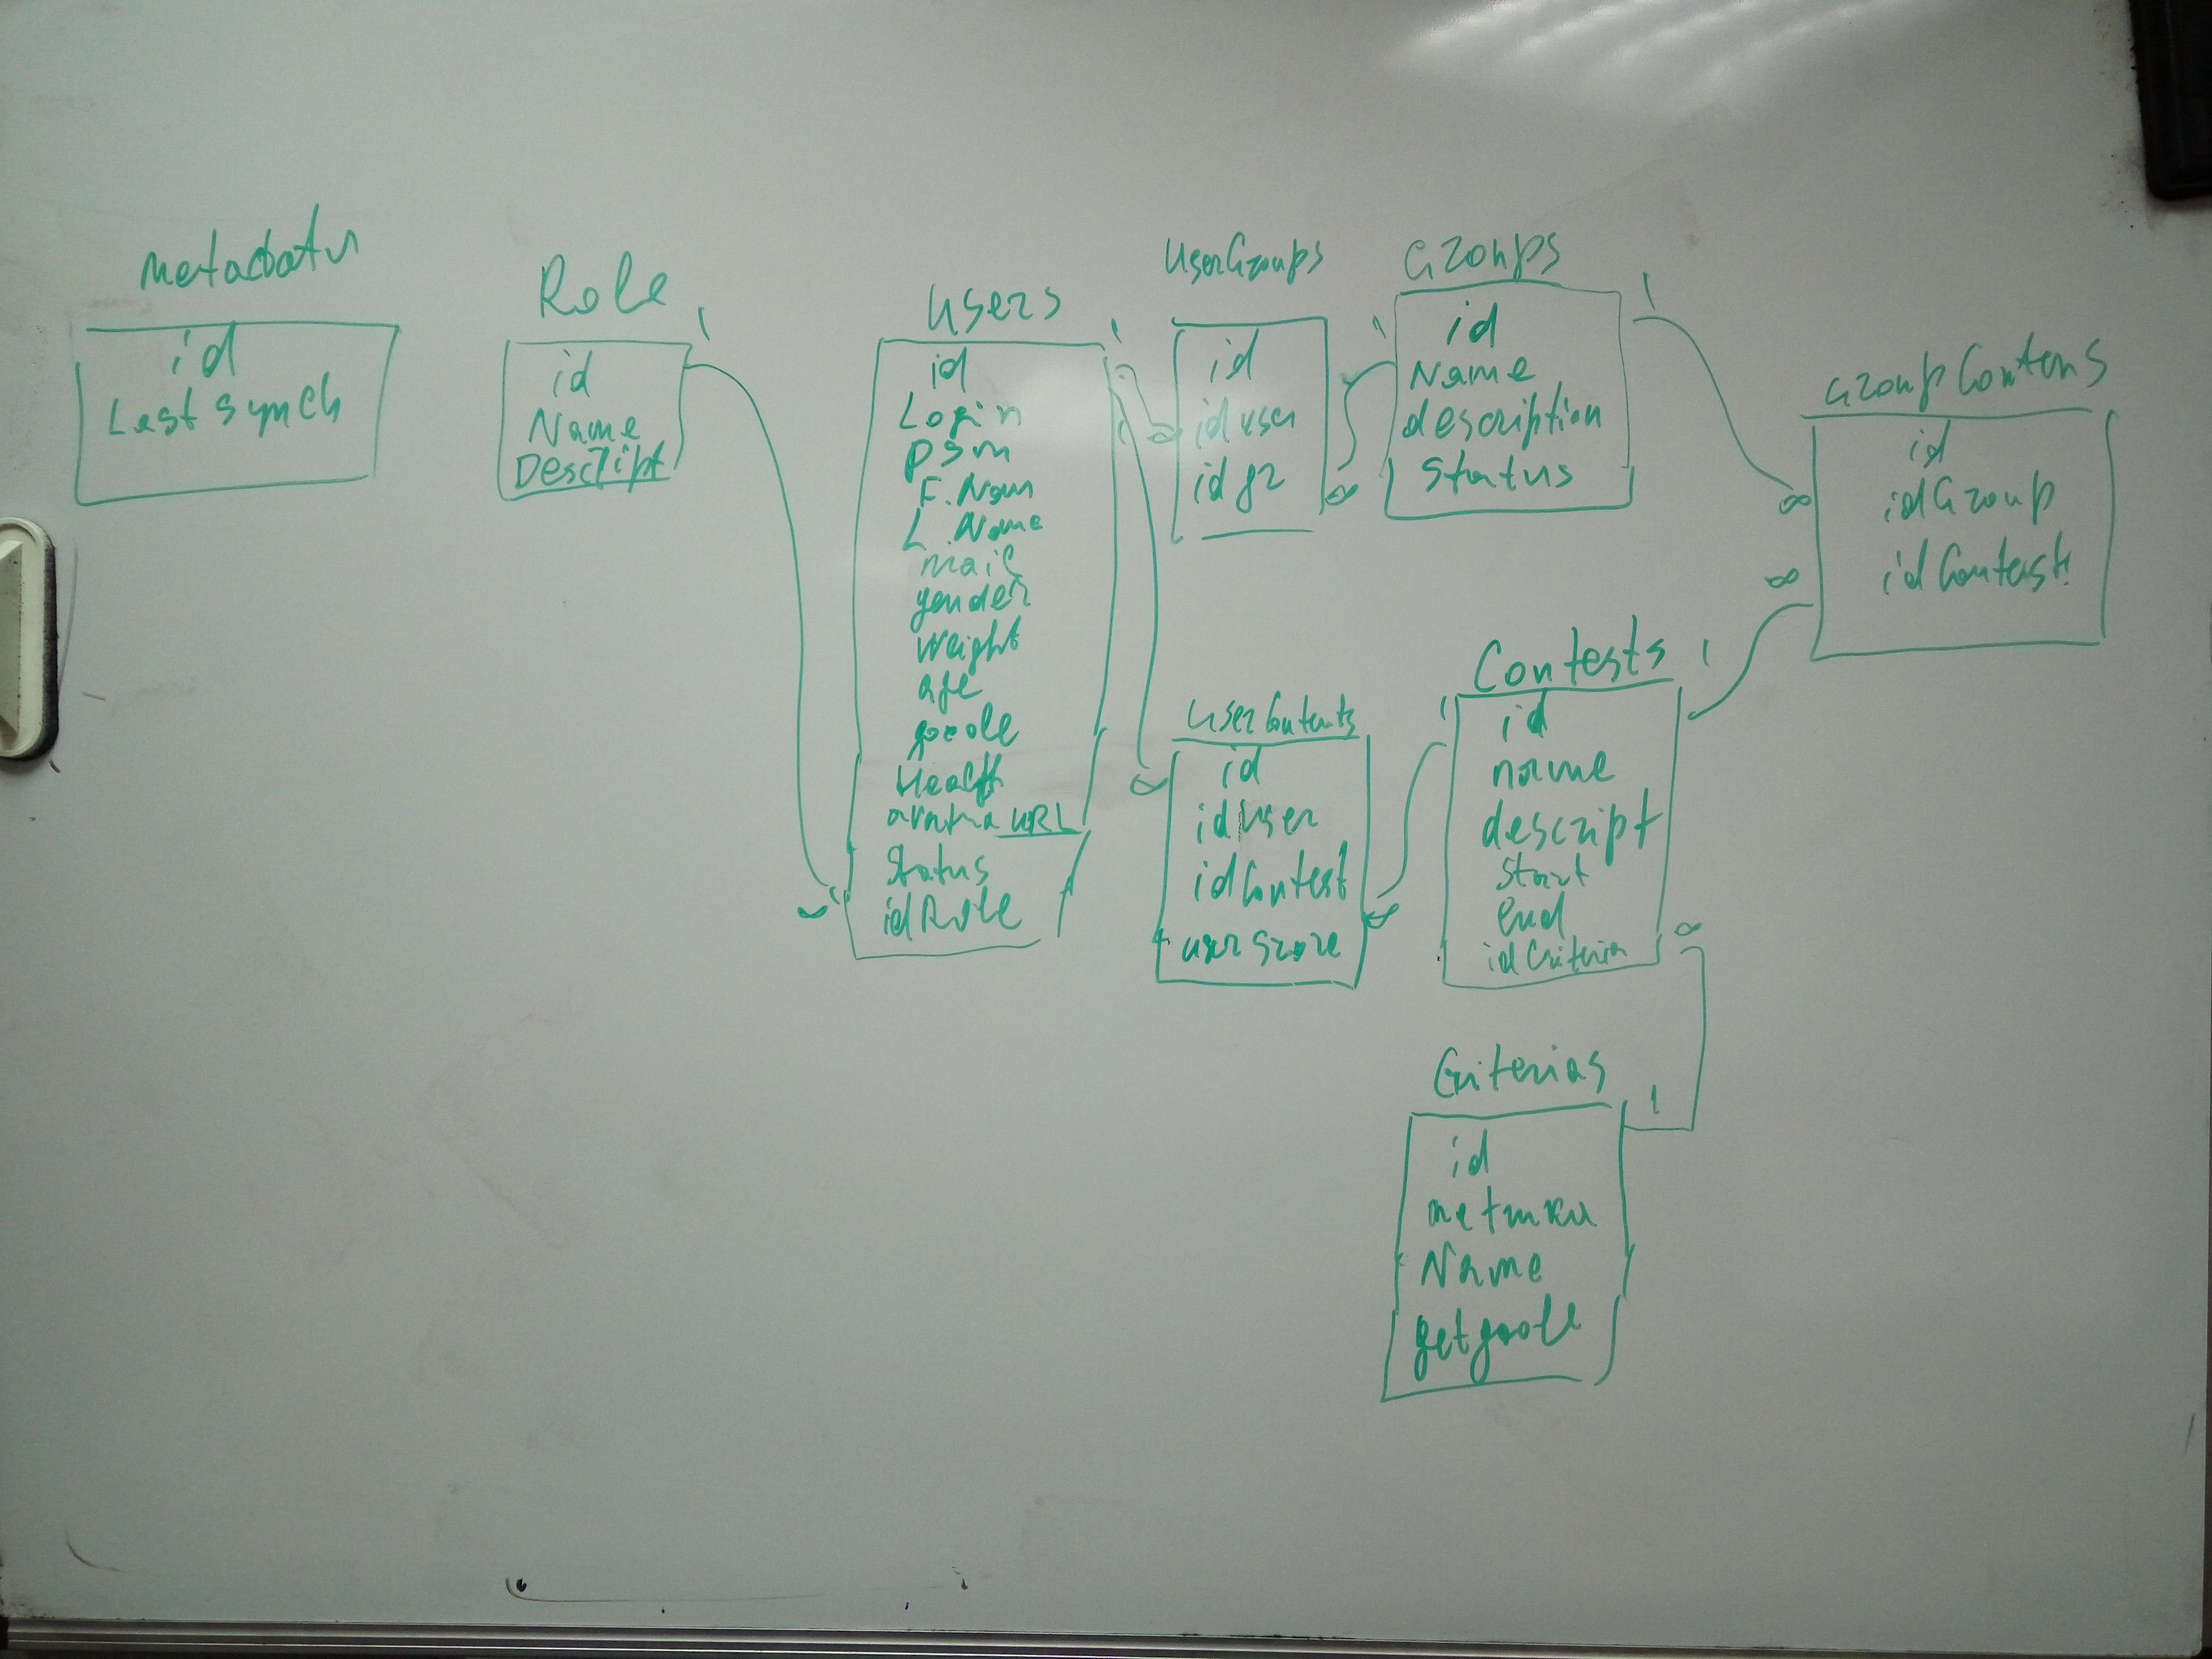 metadata
id
Last synch
Role
1
id
Name
Descript
∞
Users
1
id
Login
psw
F.Nam
L.Name
mail
gender
weight
age
goole
Health
URL
Status
idRole
UserGroups
id
iduser
idgr
∞
∞
Groups
1
1
id
Name
description
Status
GroupContens
∞
∞
id
idGroup
idContest
UserContents
∞
id
idUser
idContest
user score
∞
Contests
1
1
id
name
descript
start
end
idCriteria
∞
Criterias
1
id
Name
getgoole